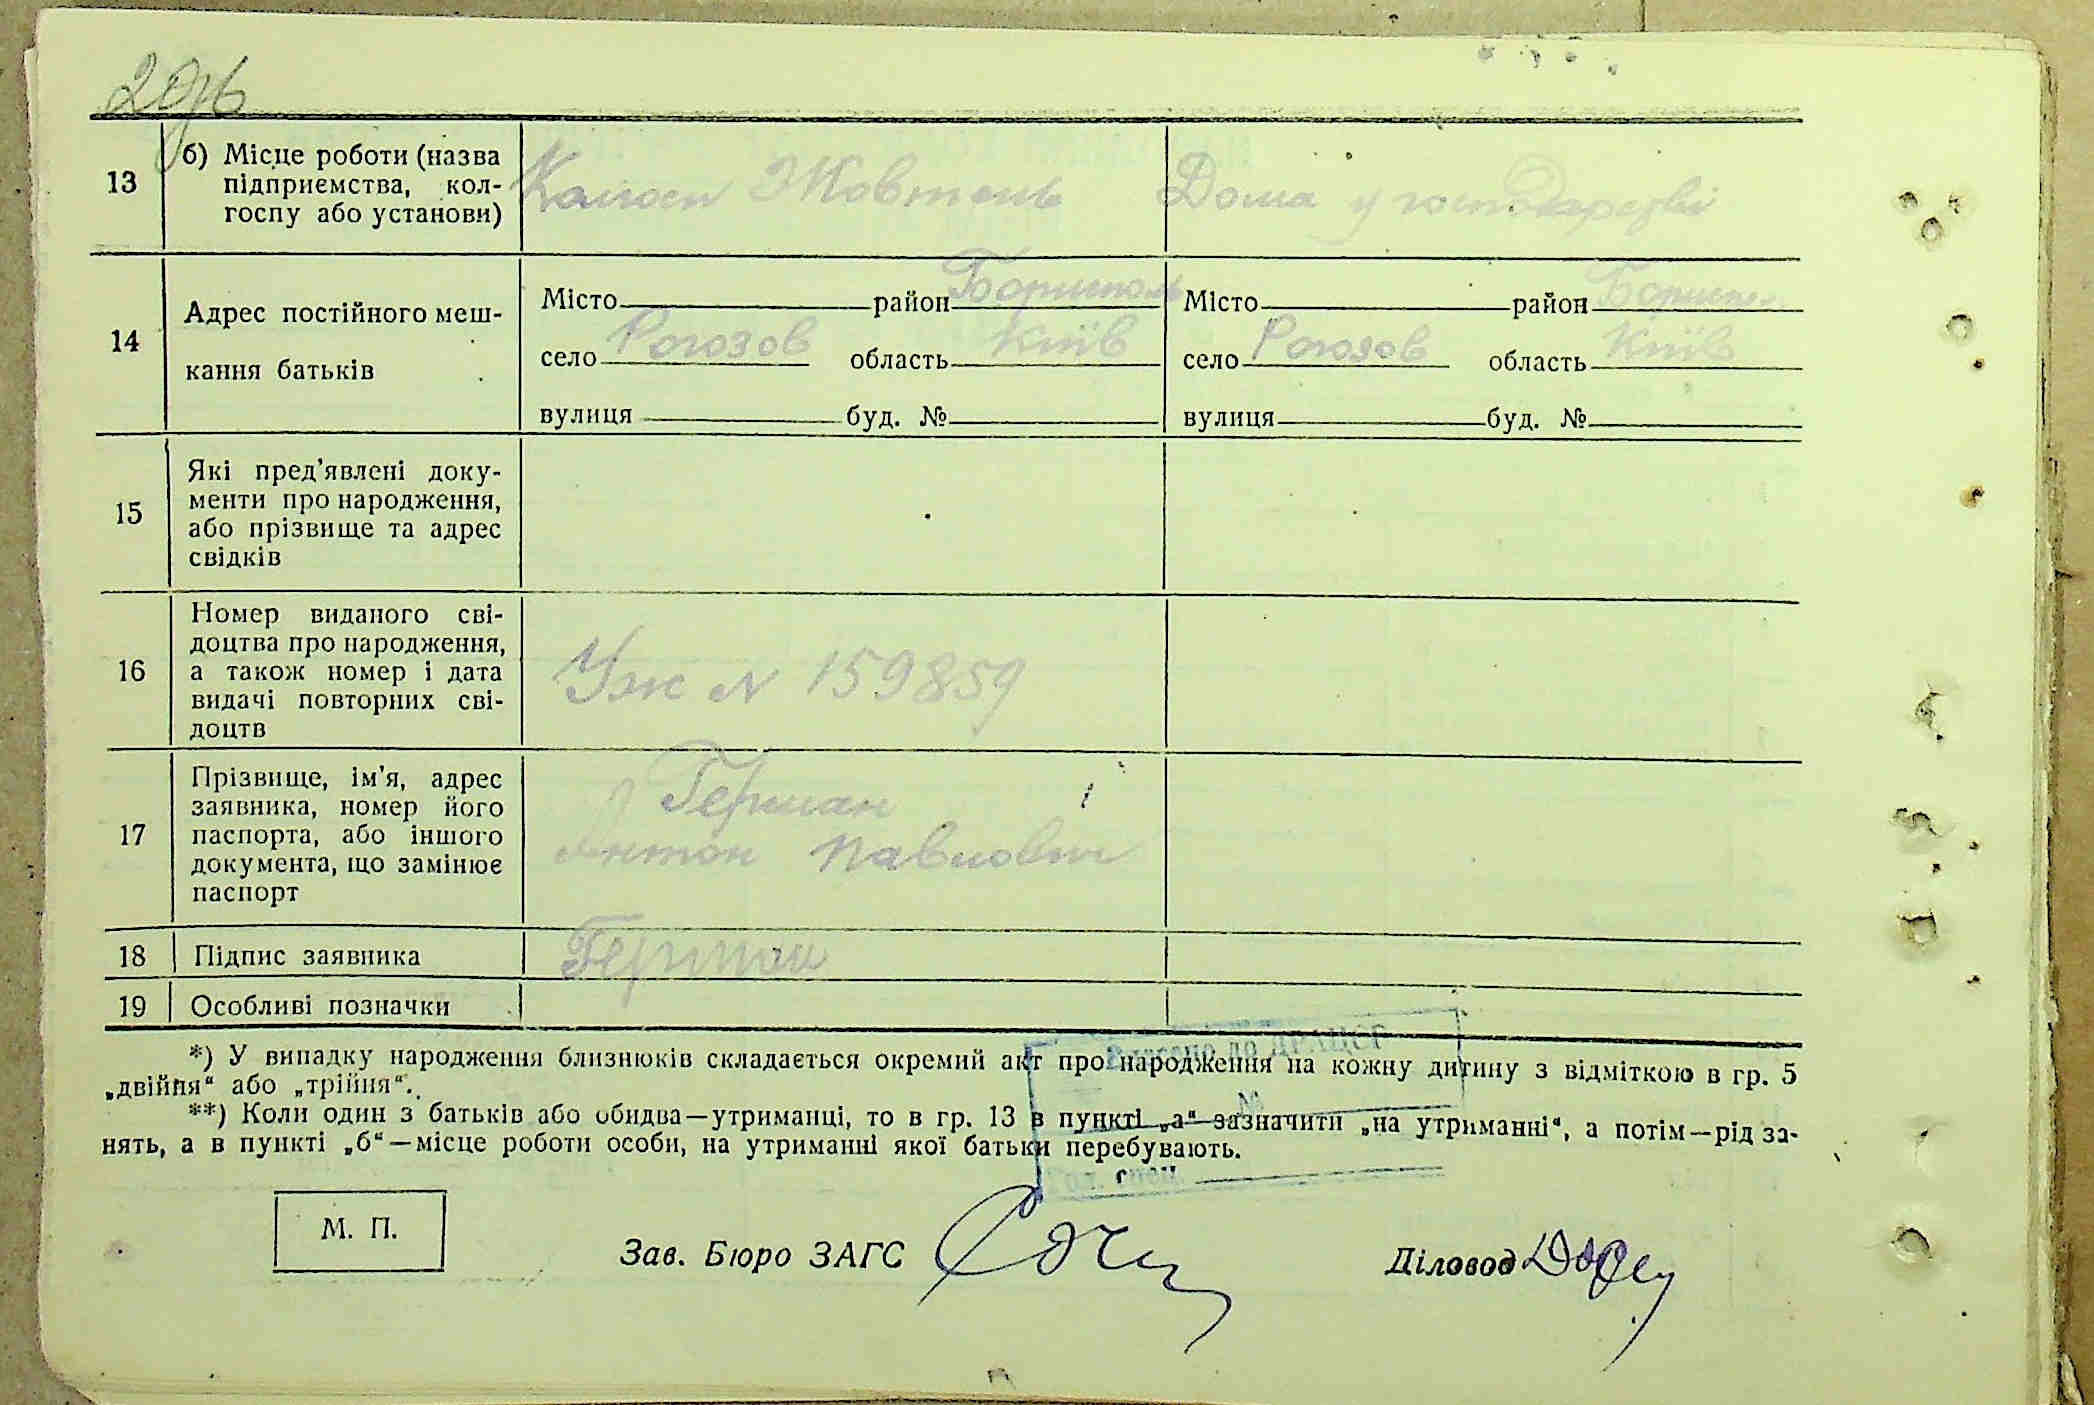 13
б) Місце роботи (назва
підприємства, кол-
госпу або установи)
Колгосп Жовтень
Дома у господарстві
14
Адрес постійного меш-
кання батьків
Місто район Бориспол
село Рогозов область Київ
вулиця буд. №
Місто район Бориспол
село Рогозов область Київ
вулиця буд. №
15
Які пред'явлені доку-
менти про народження,
або прізвище та адрес
свідків
16
Номер виданого сві-
доцтва про народження,
а також номер і дата
видачі повторних сві-
доцтв
Уж N 159859
17
Прізвище, ім'я, адрес
заявника, номер його
паспорта, або іншого
документа, що замінює
паспорт
Герман
Антон Павлович
18 Підпис заявника
Герман
19 Особливі позначки
*) У випадку народження близнюків складається окремий акт про народження на кожну дитину з відміткою в гр. 5
„двійня“ або „трійня“.
**) Коли один з батьків або обидва—утриманці, то в гр. 13 в пункті „а“ зазначити „на утриманні“, а потім—рід за-
нять, а в пункті „б“—місце роботи особи, на утриманні якої батьки перебувають.
до ДРАЦСГ
№
Гол. спец.
М. П.
Зав. Бюро ЗАГС
Діловод